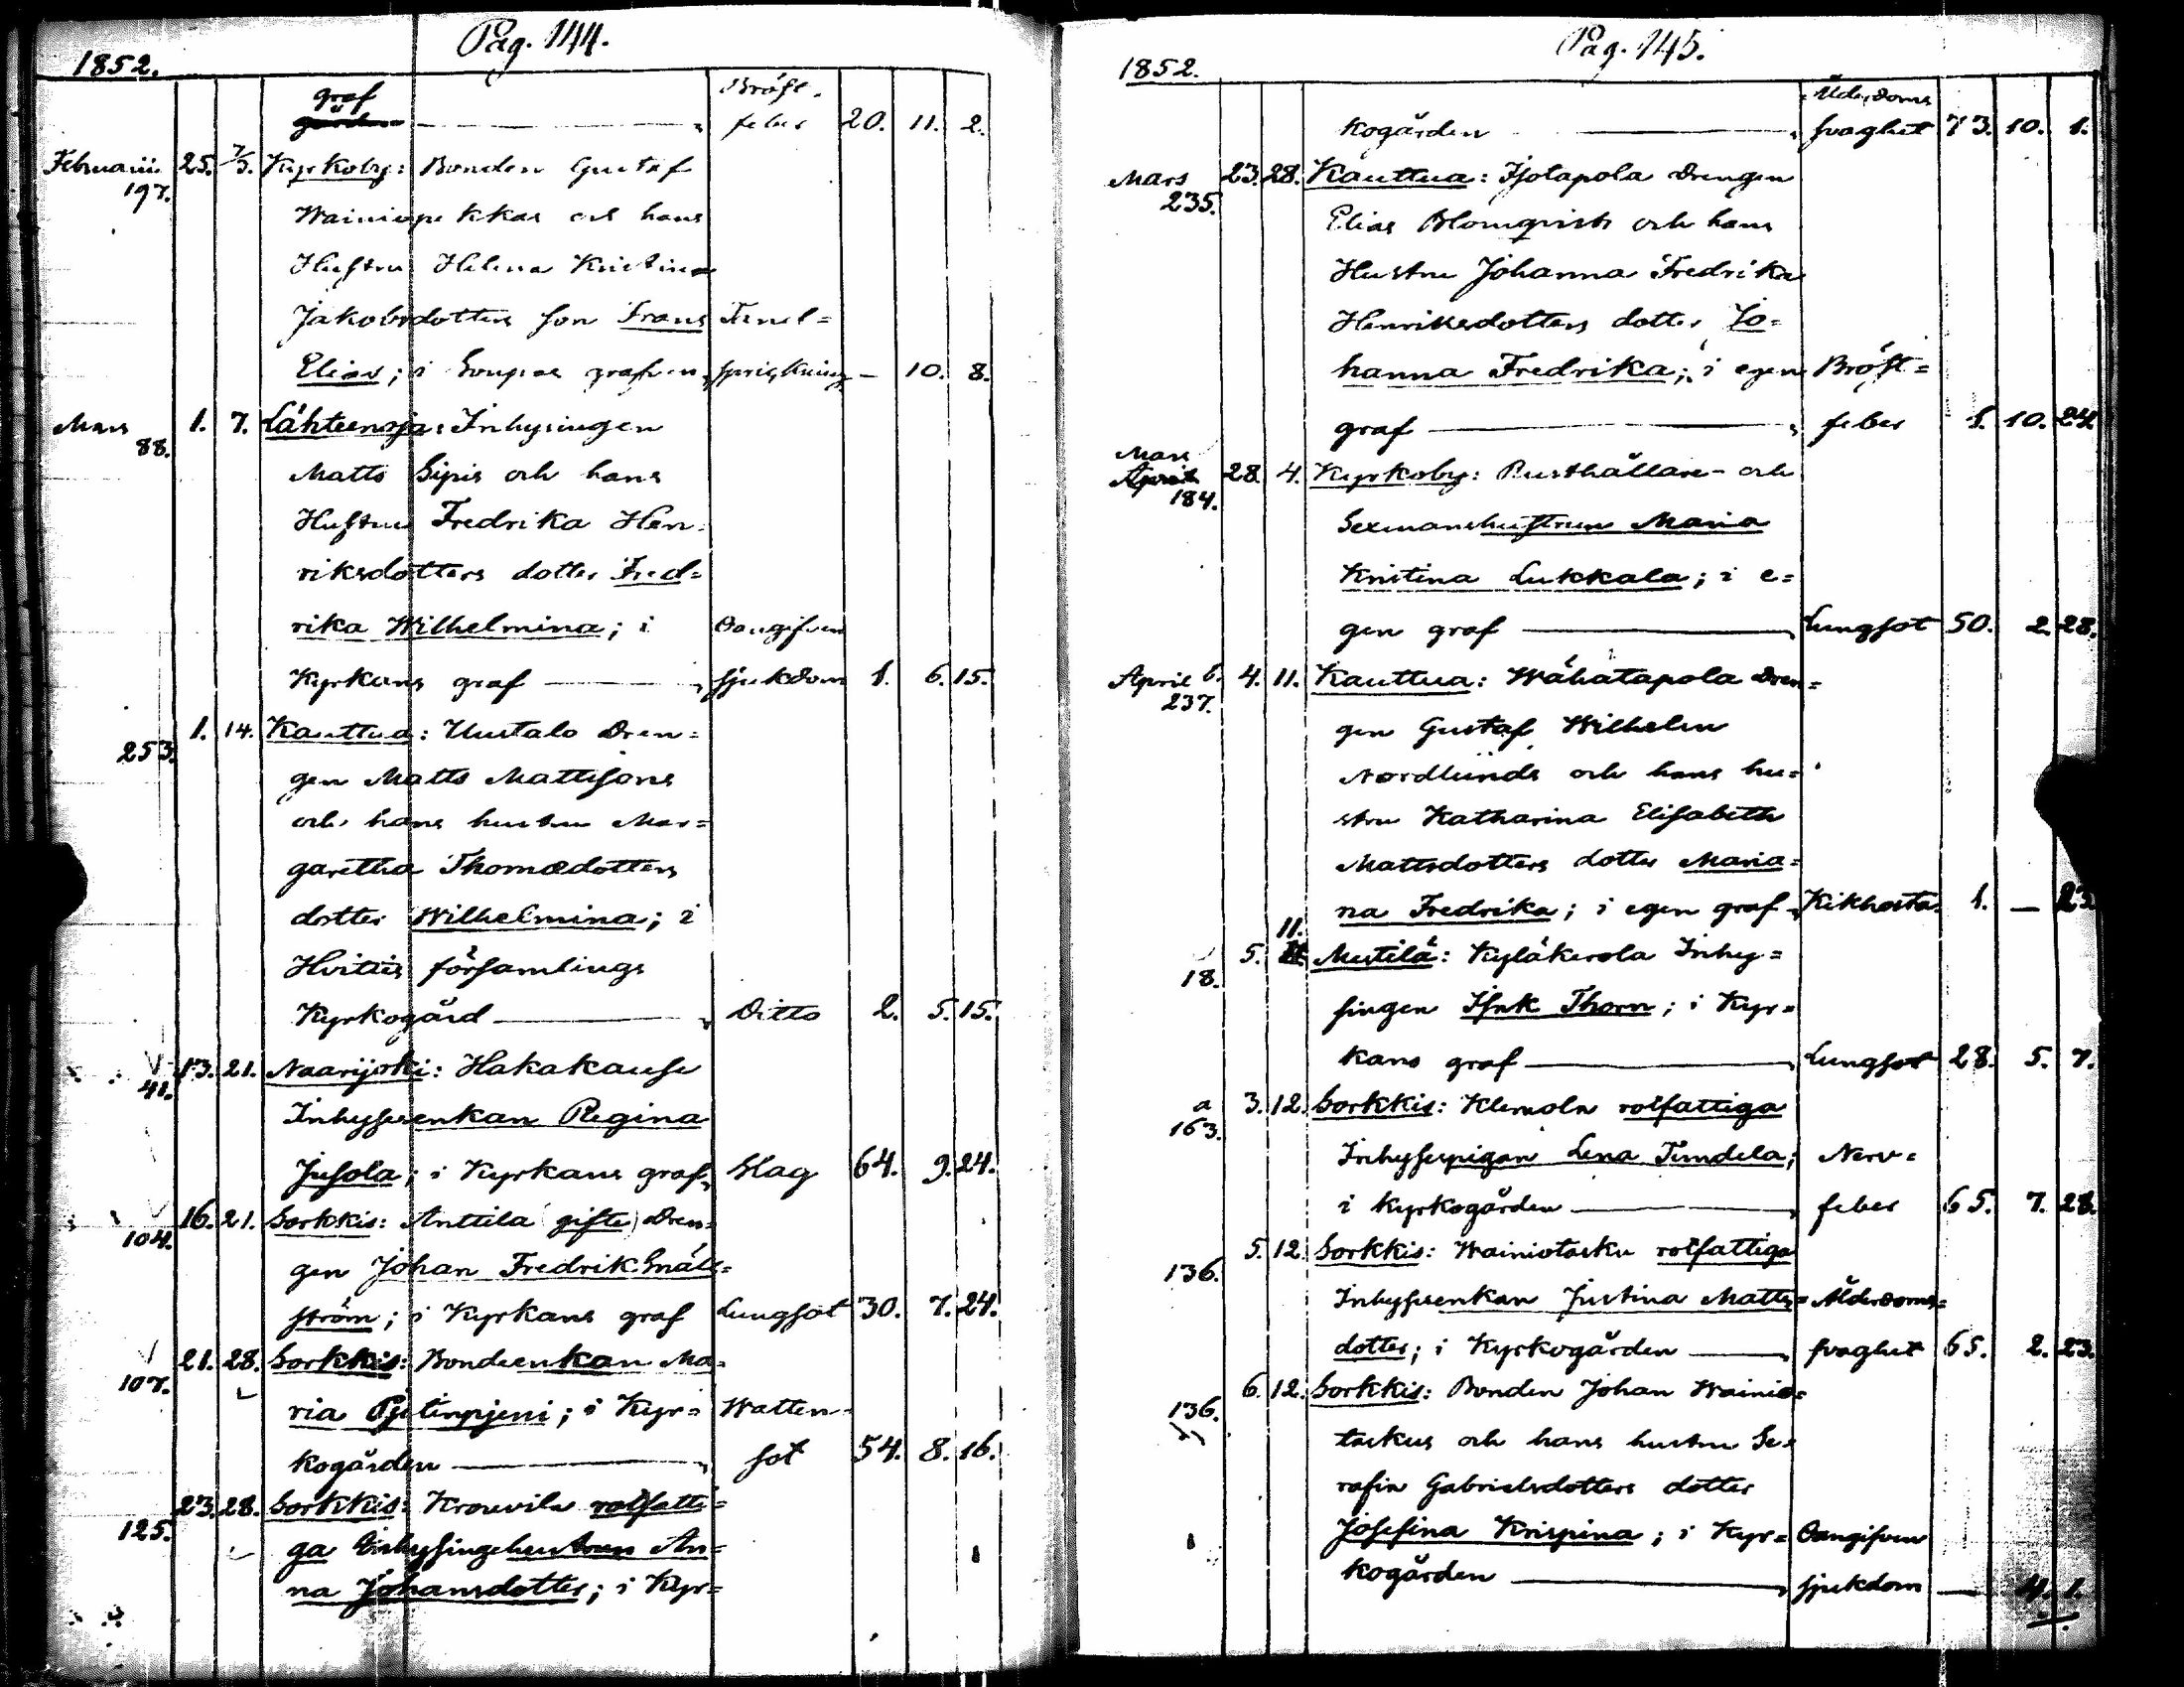 Pag. 144.
1852.
graf Bröst-
feber 20. 11. 2.
Februarii 25. 7/3. Kyrkoby: Bonden Gustaf
197. Wainionpekkas och hans
Hustru Helena Kristina
Jakobsdotters son Frans Fenel=
Elias; i Soupas grafven, sprickning — 10. 8.
Mars 1. 7. Lähteenoja: Inhysingen
88. Matts Sipis och hans
Hustru Fredrika Hen-
riksdotters dotter Fred=
rika Wilhelmina; i Oangifven
Kyrkans graf sjukdom 1. 6. 15.
1. 14. Kauttua: Uustalo Dren=
253. gen Matts Mattssons
och hans hustru Mar=
garetha Thomædotters
dotter Wilhelmina; i
Hvittis församlings
Kyrkogård Ditto 2. 5. 15.
13. 21. Naarijoki: Hakakause
41. Inhysesenkan Regina
Jusola; i Kyrkans graf Slag 64. 9. 24.
16. 21. Sorkkis: Anttila (gifte) Dren=
104. gen Johan Fredrik Snäll=
ström; i Kyrkans graf Lungsot 30. 7. 24.
21. 28. Sorkkis: Bondeenkan Ma=
107. ria ; i Kyr= Watten-
kogården sot 54. 8. 16.
23. 28. Sorkkis: Krouvila rotfatti=
125. ga Inhysingehustrun An=
na Johansdotter; i Kyr=
Pag. 145.
1852.
Ålderdoms
kogården svaghet 73. 10. 1.
Mars 23. 28. Kauttua: Isotapola Drengen
235. Elias Blomqvists och hans
Hustru Johanna Fredrika
Henriksdotters dotter Jo=
hanna Fredrika; i egen Bröst=
graf feber 1. 10. 24.
Mars
April 28. 4. Kyrkoby: Rusthållare- och
184. Sexmanshustrun Maria
Kristina Lukkala; i e=
gen graf Lungsot 50. 2. 28.
April b. 4. 11. Kauttua: Wähätapola Dren=
237. gen Gustaf Wilhelm
Nordlunds och hans hu=
stru Katharina Elisabeth
Mattsdotters dotter Maria=
na Fredrika; i egen graf Kikhosta 1. — 23.
11.
5. Mestilä: Kyläkerola Inhy=
18. singen Isak Thorn; i Kyr=
kans graf Lungsot 28. 5. 7.
a 3. 12. Sorkkis: Klemola rotfattiga
163. Inhysespigan Lena Tundela; Nerv=
i Kyrkogården feber 65. 7. 28.
5. 12. Sorkkis: Wainiotasku rotfattiga
136. Inhysesenkan Justina Matts= Ålderdoms=
dotter; i Kyrkogården svaghet 65. 2. 23.
6. 12. Sorkkis: Bonden Johan Wainio=
136. taskus och hans hustru Se=
rafin Gabrielsdotters dotter
Josefina Krispina; i Kyr= Oangifven
kogården sjukdom — 4. 1.